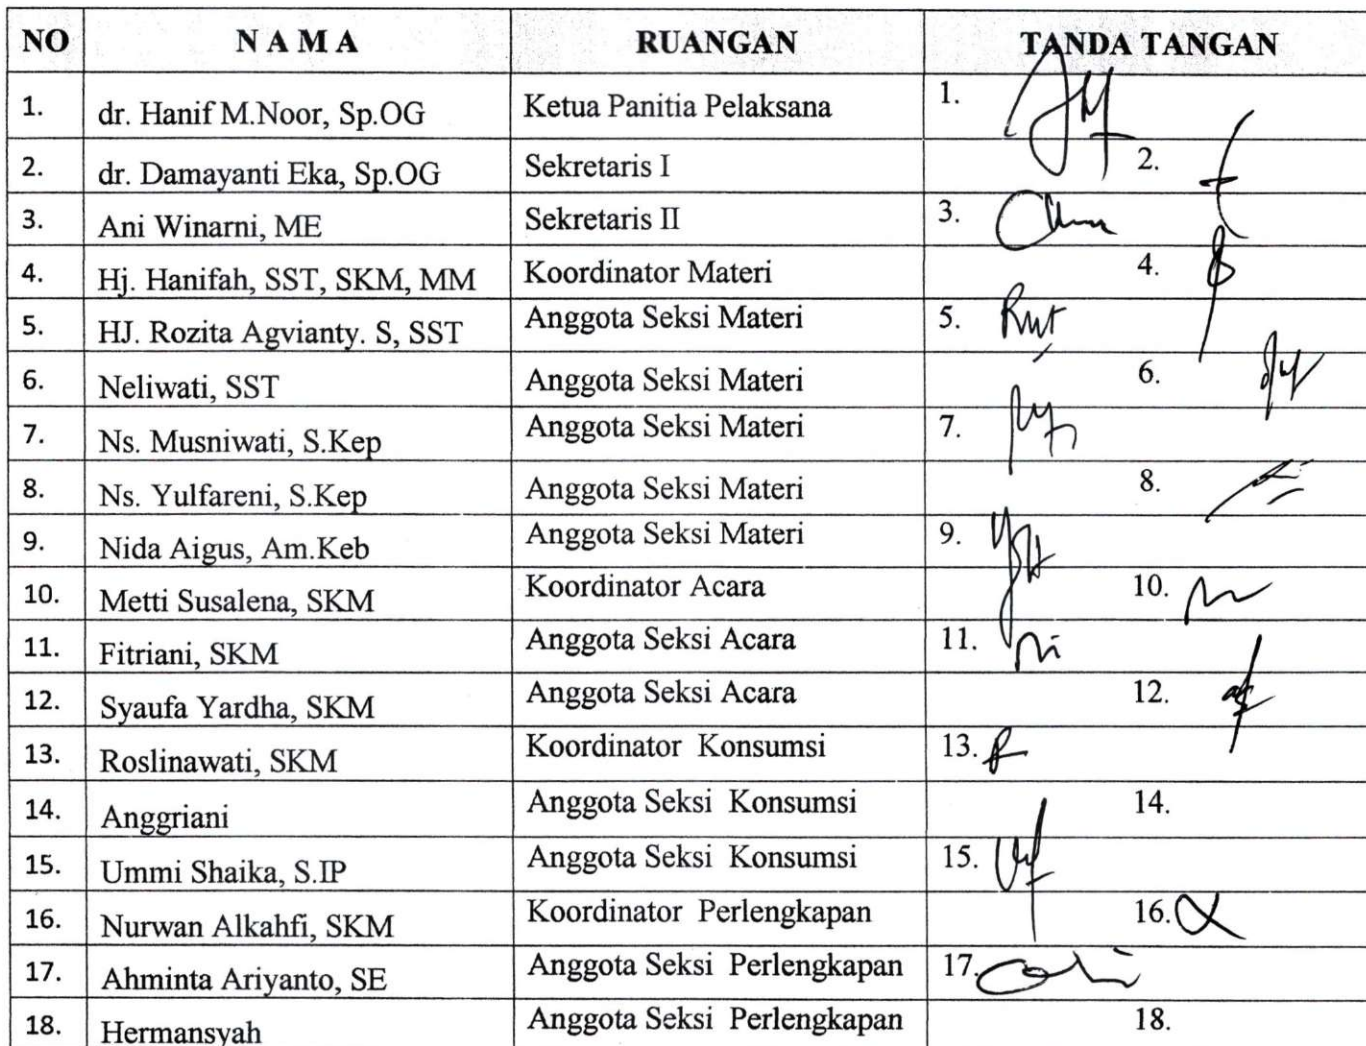 NO N A M A RUANGAN TANDA TANGAN
1. dr. Hanif M.Noor, Sp.OG Ketua Panitia Pelaksana 1.
2. dr. Damayanti Eka, Sp.OG Sekretaris I 2.
3. Ani Winarni, ME Sekretaris II 3.
4. Hj. Hanifah, SST, SKM, MM Koordinator Materi 4.
5. HJ. Rozita Agvianty. S, SST Anggota Seksi Materi 5.
6. Neliwati, SST Anggota Seksi Materi 6.
7. Ns. Musniwati, S.Kep Anggota Seksi Materi 7.
8. Ns. Yulfareni, S.Kep Anggota Seksi Materi 8.
9. Nida Aigus, Am.Keb Anggota Seksi Materi 9.
10. Metti Susalena, SKM Koordinator Acara 10.
11. Fitriani, SKM Anggota Seksi Acara 11.
12. Syaufa Yardha, SKM Anggota Seksi Acara 12.
13. Roslinawati, SKM Koordinator Konsumsi 13.
14. Anggriani Anggota Seksi Konsumsi 14.
15. Ummi Shaika, S.IP Anggota Seksi Konsumsi 15.
16. Nurwan Alkahfi, SKM Koordinator Perlengkapan 16.
17. Ahminta Ariyanto, SE Anggota Seksi Perlengkapan 17.
18. Hermansyah Anggota Seksi Perlengkapan 18.